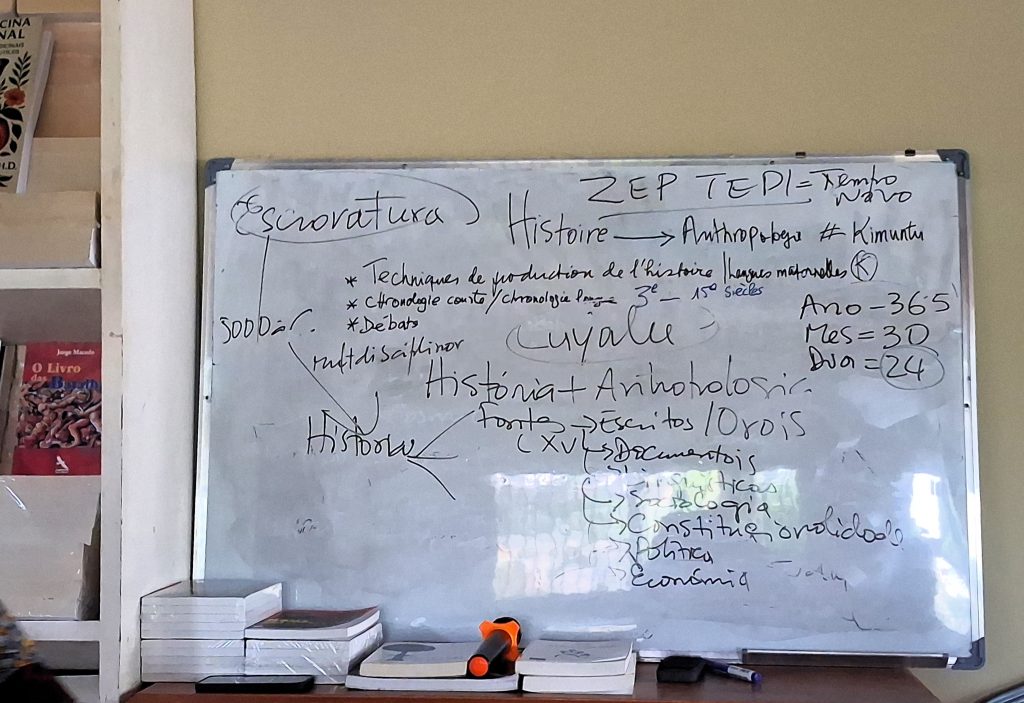 CINA
NAL
H.D.
Jorge Macedo
O Livro
das Batalhas
ZEP TEDI = Tempo
Novo
Escravatura
Histoire → Anthropologie # Kimuntu
* Techniques de production de l'histoire / Langues maternelles K
* Chronologie courte / chronologie longue 3e - 15e siècles
* Débats
5000 a.C.
multidisciplinar
Luyalu
Ano - 365
Mes = 30
Dia = 24
História + Antropologia
História
Fontes → Escritos / Orais
(XV
→ Documentais
→ Linguísticas
→ Sociologia
→ Constitucionalidade
→ Política
→ Económia